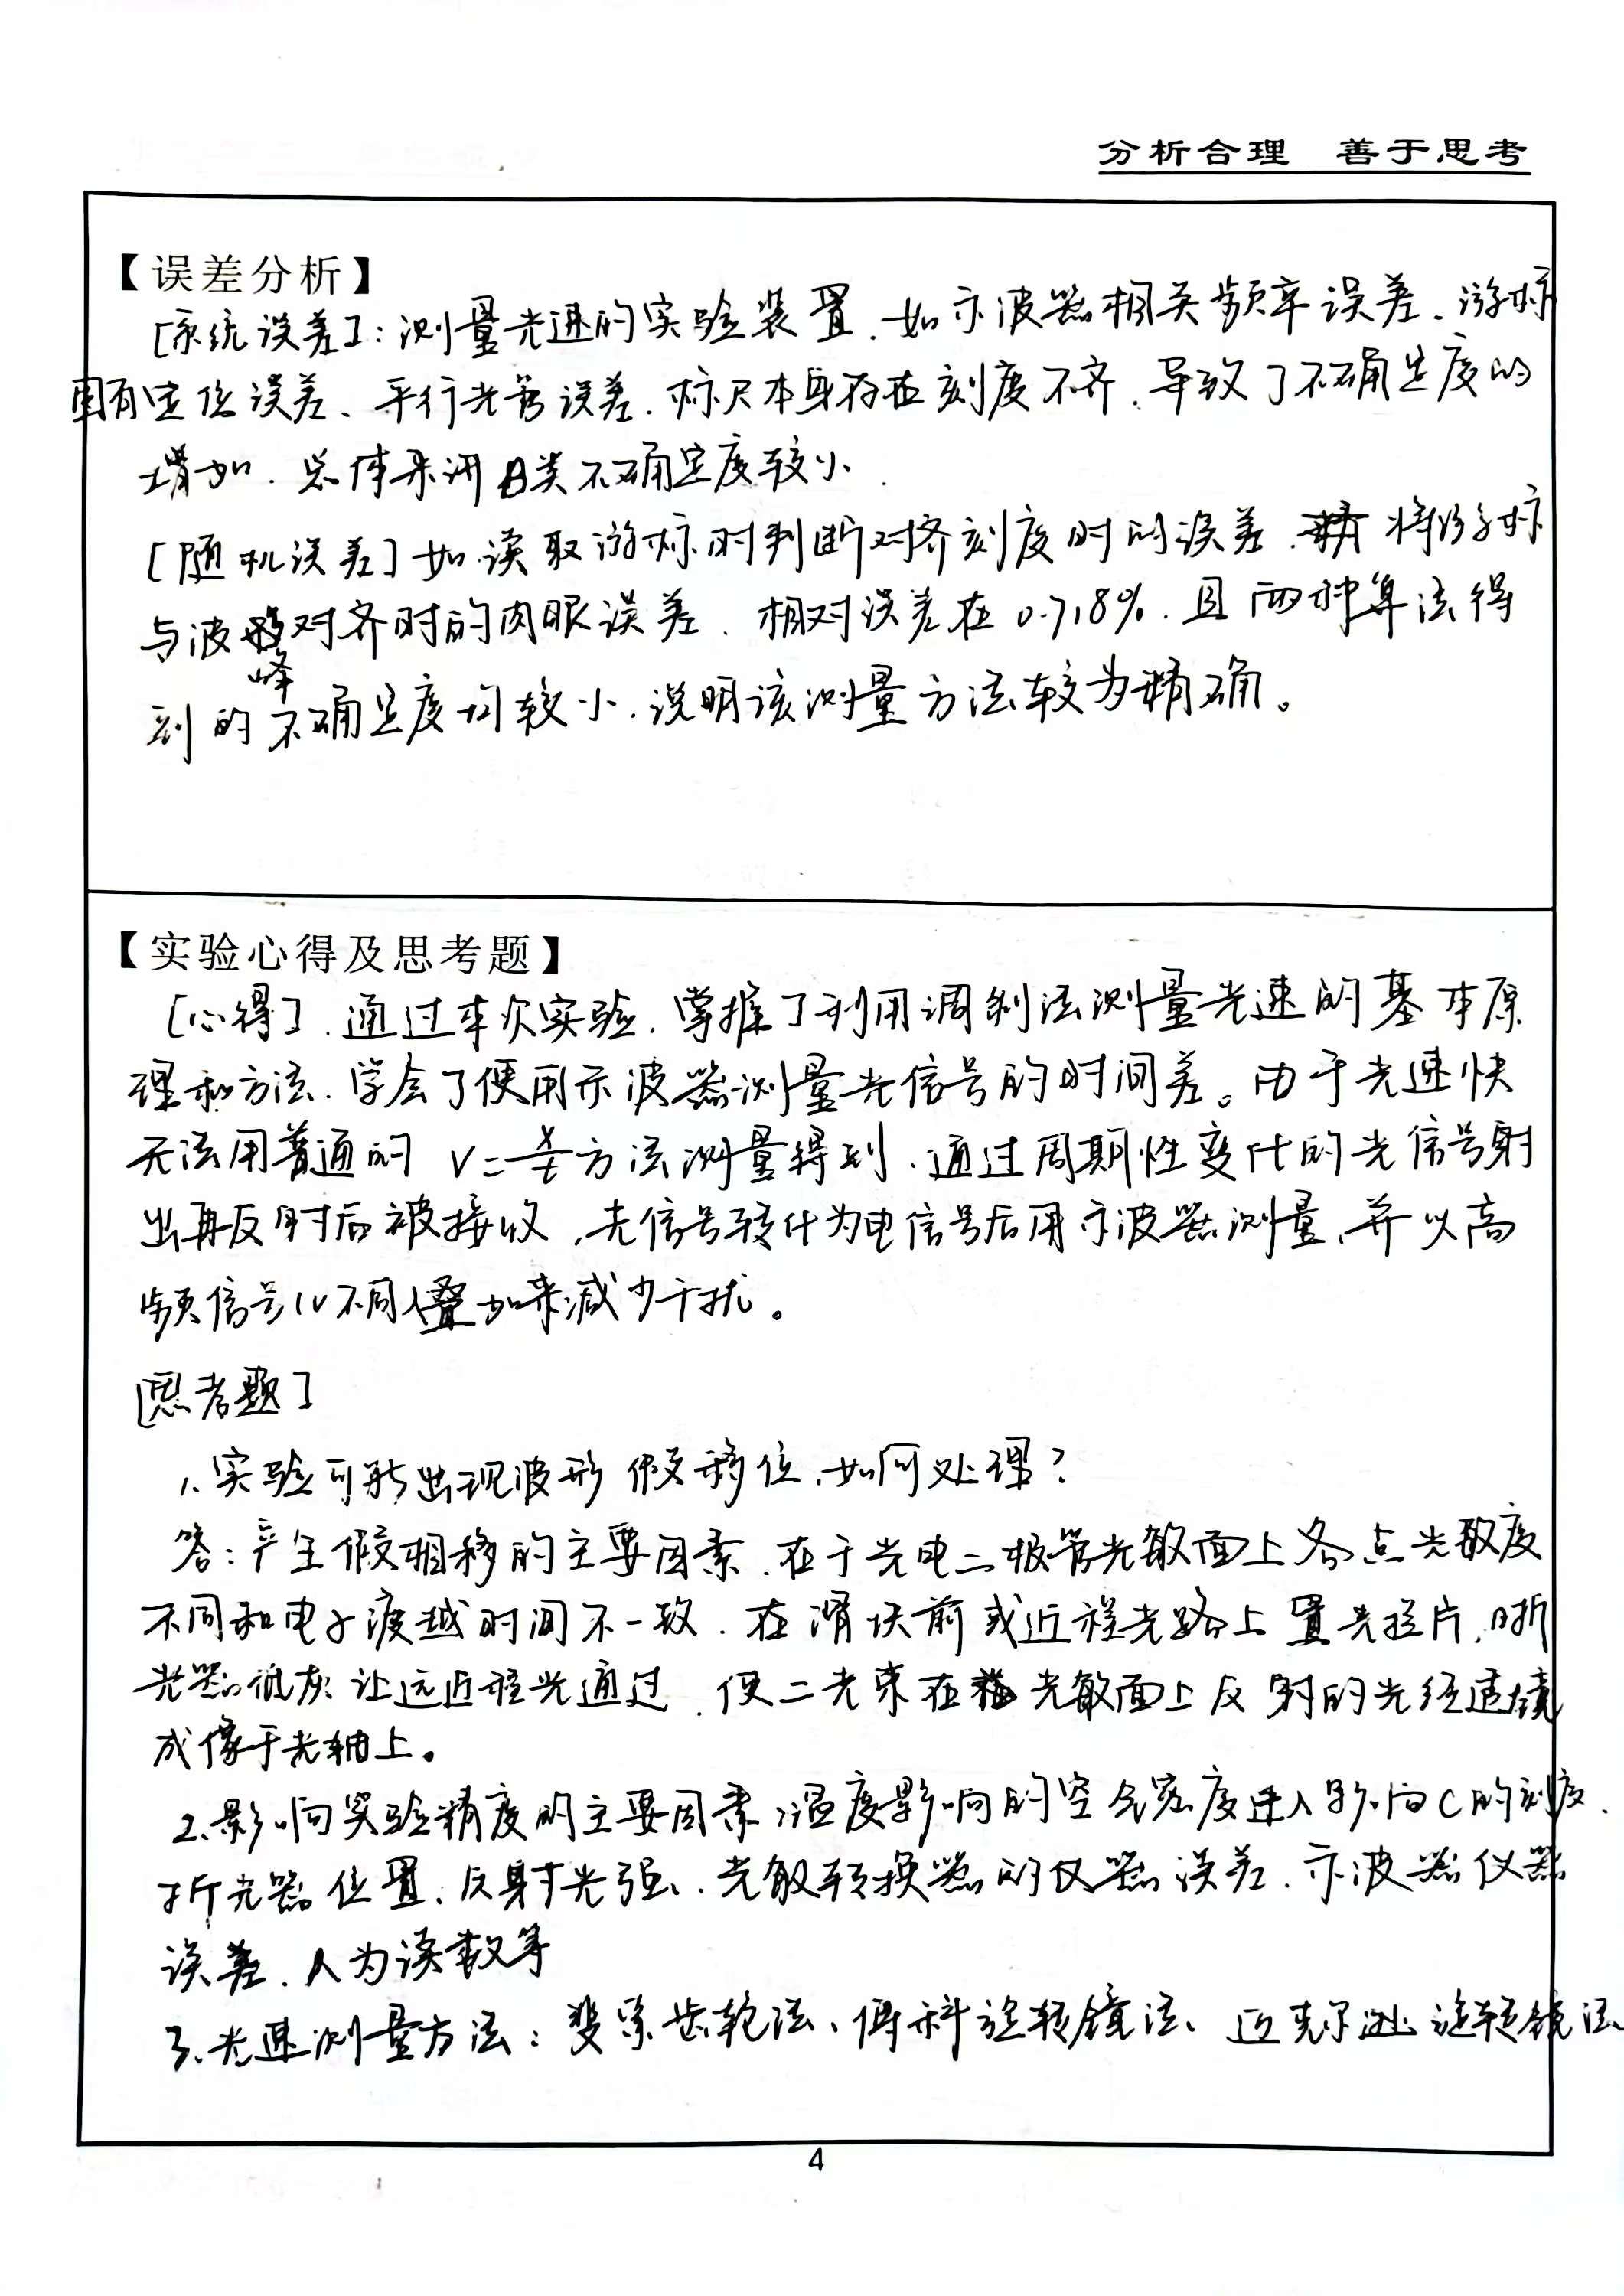 分析合理 善于思考
【误差分析】
[系统误差]:测量光速的实验装置.如示波器相关频率误差、游标
固有定位误差、平行光管误差.标尺本身存在刻度不齐.导致了不确定度的
增加.总体来讲B类不确定度较小.
[随机误差]如读取游标时判断对齐刻度时的误差.将游标
与波峰对齐时的肉眼误差.相对误差在0.718%.且两种算法得
到的不确定度均较小.说明该测量方法较为精确。
【实验心得及思考题】
[心得].通过本次实验.掌握了利用调制法测量光速的基本原
理和方法.学会了使用示波器测量光信号的时间差。由于光速快
无法用普通的 V=x/t方法测量得到.通过周期性变化的光信号射
出再反射后被接收,光信号转化为电信号后用示波器测量,并以高
频信号 不同 叠加来减少干扰。
[思考题]
1.实验可能出现波形假移位.如何处理?
答:产生假相移的主要因素.在于光电二极管光敏面上各点光敏度
不同和电子渡越时间不一致.在滑块前或近程光路上置光拦片,
光器 让远近程光通过.使二光束在光敏面上反射的光经透镜
成像于光轴上。
2.影响实验精度的主要因素:温度影响的空气密度进入影响C的刻度.
折光器位置、反射光强、光敏转换器的仪器误差.示波器仪器
误差、人为读数等
3.光速测量方法:斐索齿轮法、傅科旋转镜法、迈克尔逊旋转镜法
4